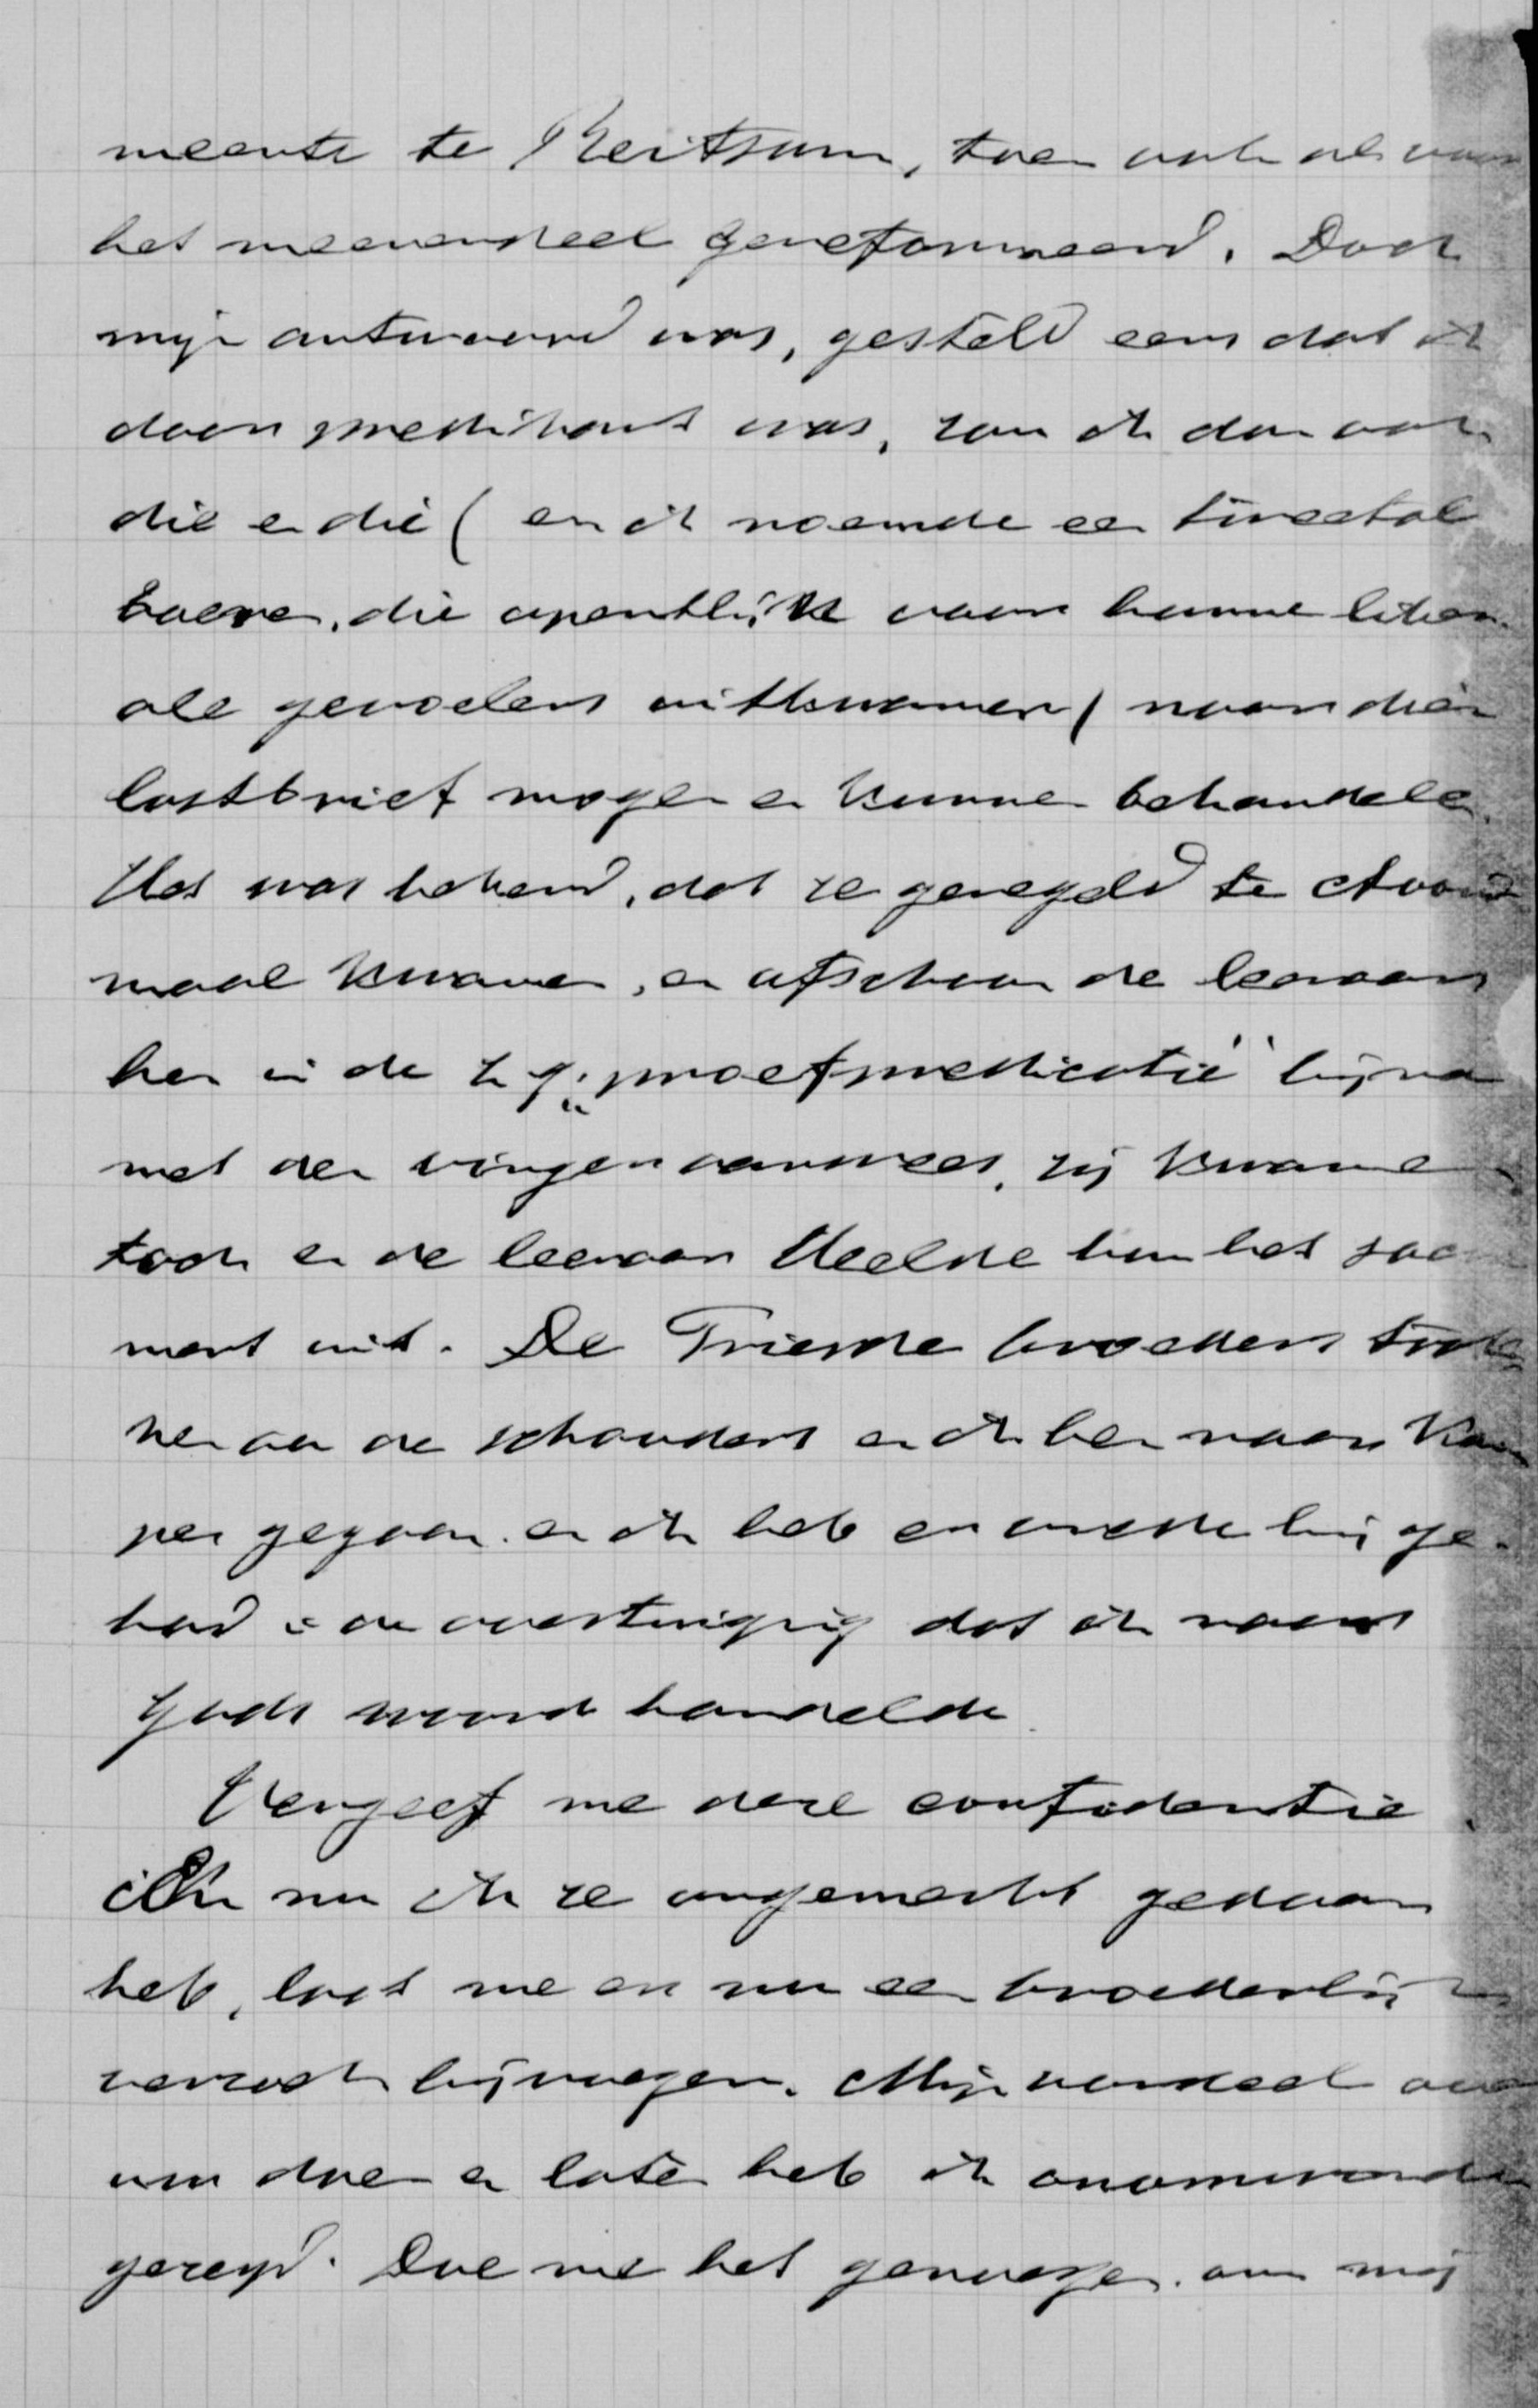 meente te Reitsum, toen ook al voor
het meerendeel gereformeerd. Doch
mijn antwoord was, gesteld eens dat ik
daar predikant was, zou ik dan ook
die en die (en ik noemde een tweetal
boeren, die openlijk voor hunne liber-
ale gevoelens uitkwamen) naar dien
lastbrief mogen en kunnen behandelen.
Het was bekend, dat ze geregeld te Avond
maal kwamen, en ofschoon de leeraar
hen in de z.g. „proefpredicatie" bijna
met den vinger aanwees, zij kwamen
toch en de leeraar deelde hun het sacra
ment uit. De Friesche broeders trokken
hen aan de schouders en ik ben naar Kam
pen gegaan en ik heb er vrede bij ge-
had in de overtuiging dat ik naar
Gods woord handelde.
Vergeef me deze confidentie.
En nu ik ze ongemerkt gedaan
heb, laat me er nu een broederlijk
verzoek bijvoegen. Mijn oordeel over
uw doen en laten heb ik onomwonden
gezegd. Doe me het genoegen om mij